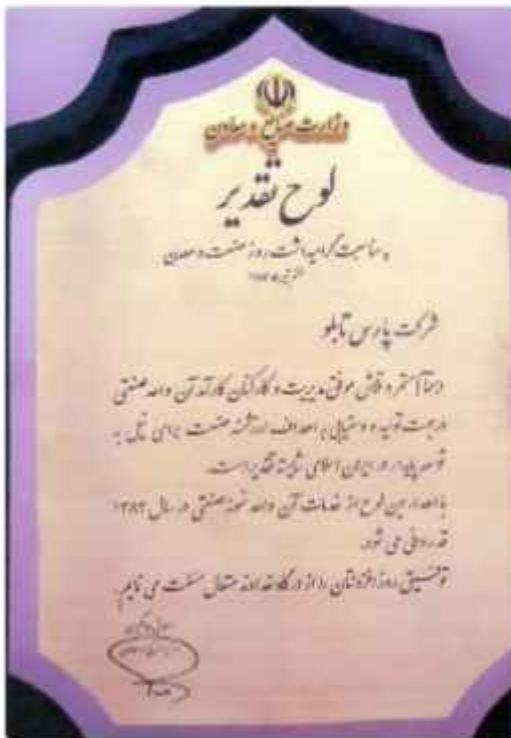 وزارت صنایع و معادن
لوح تقدیر
بمناسبت گرامیداشت روز صنعت و معدن
شرکت پارس تابلو
مستمر و تلاش موفق مدیریت و کارکنان کارآمد آن واحد صنعتی
در جهت تولید و دستیابی به اهداف ارزشمند صنعت برای نیل به
توسعه پایدار در ایران اسلامی شایسته تقدیر است.
با اهداء این لوح از خدمات آن واحد نمونه صنعتی در سال ۱۳۸۳
قدردانی می شود.
توفیق روزافزونتان را از درگاه خداوند متعال مسئلت می نمایم.